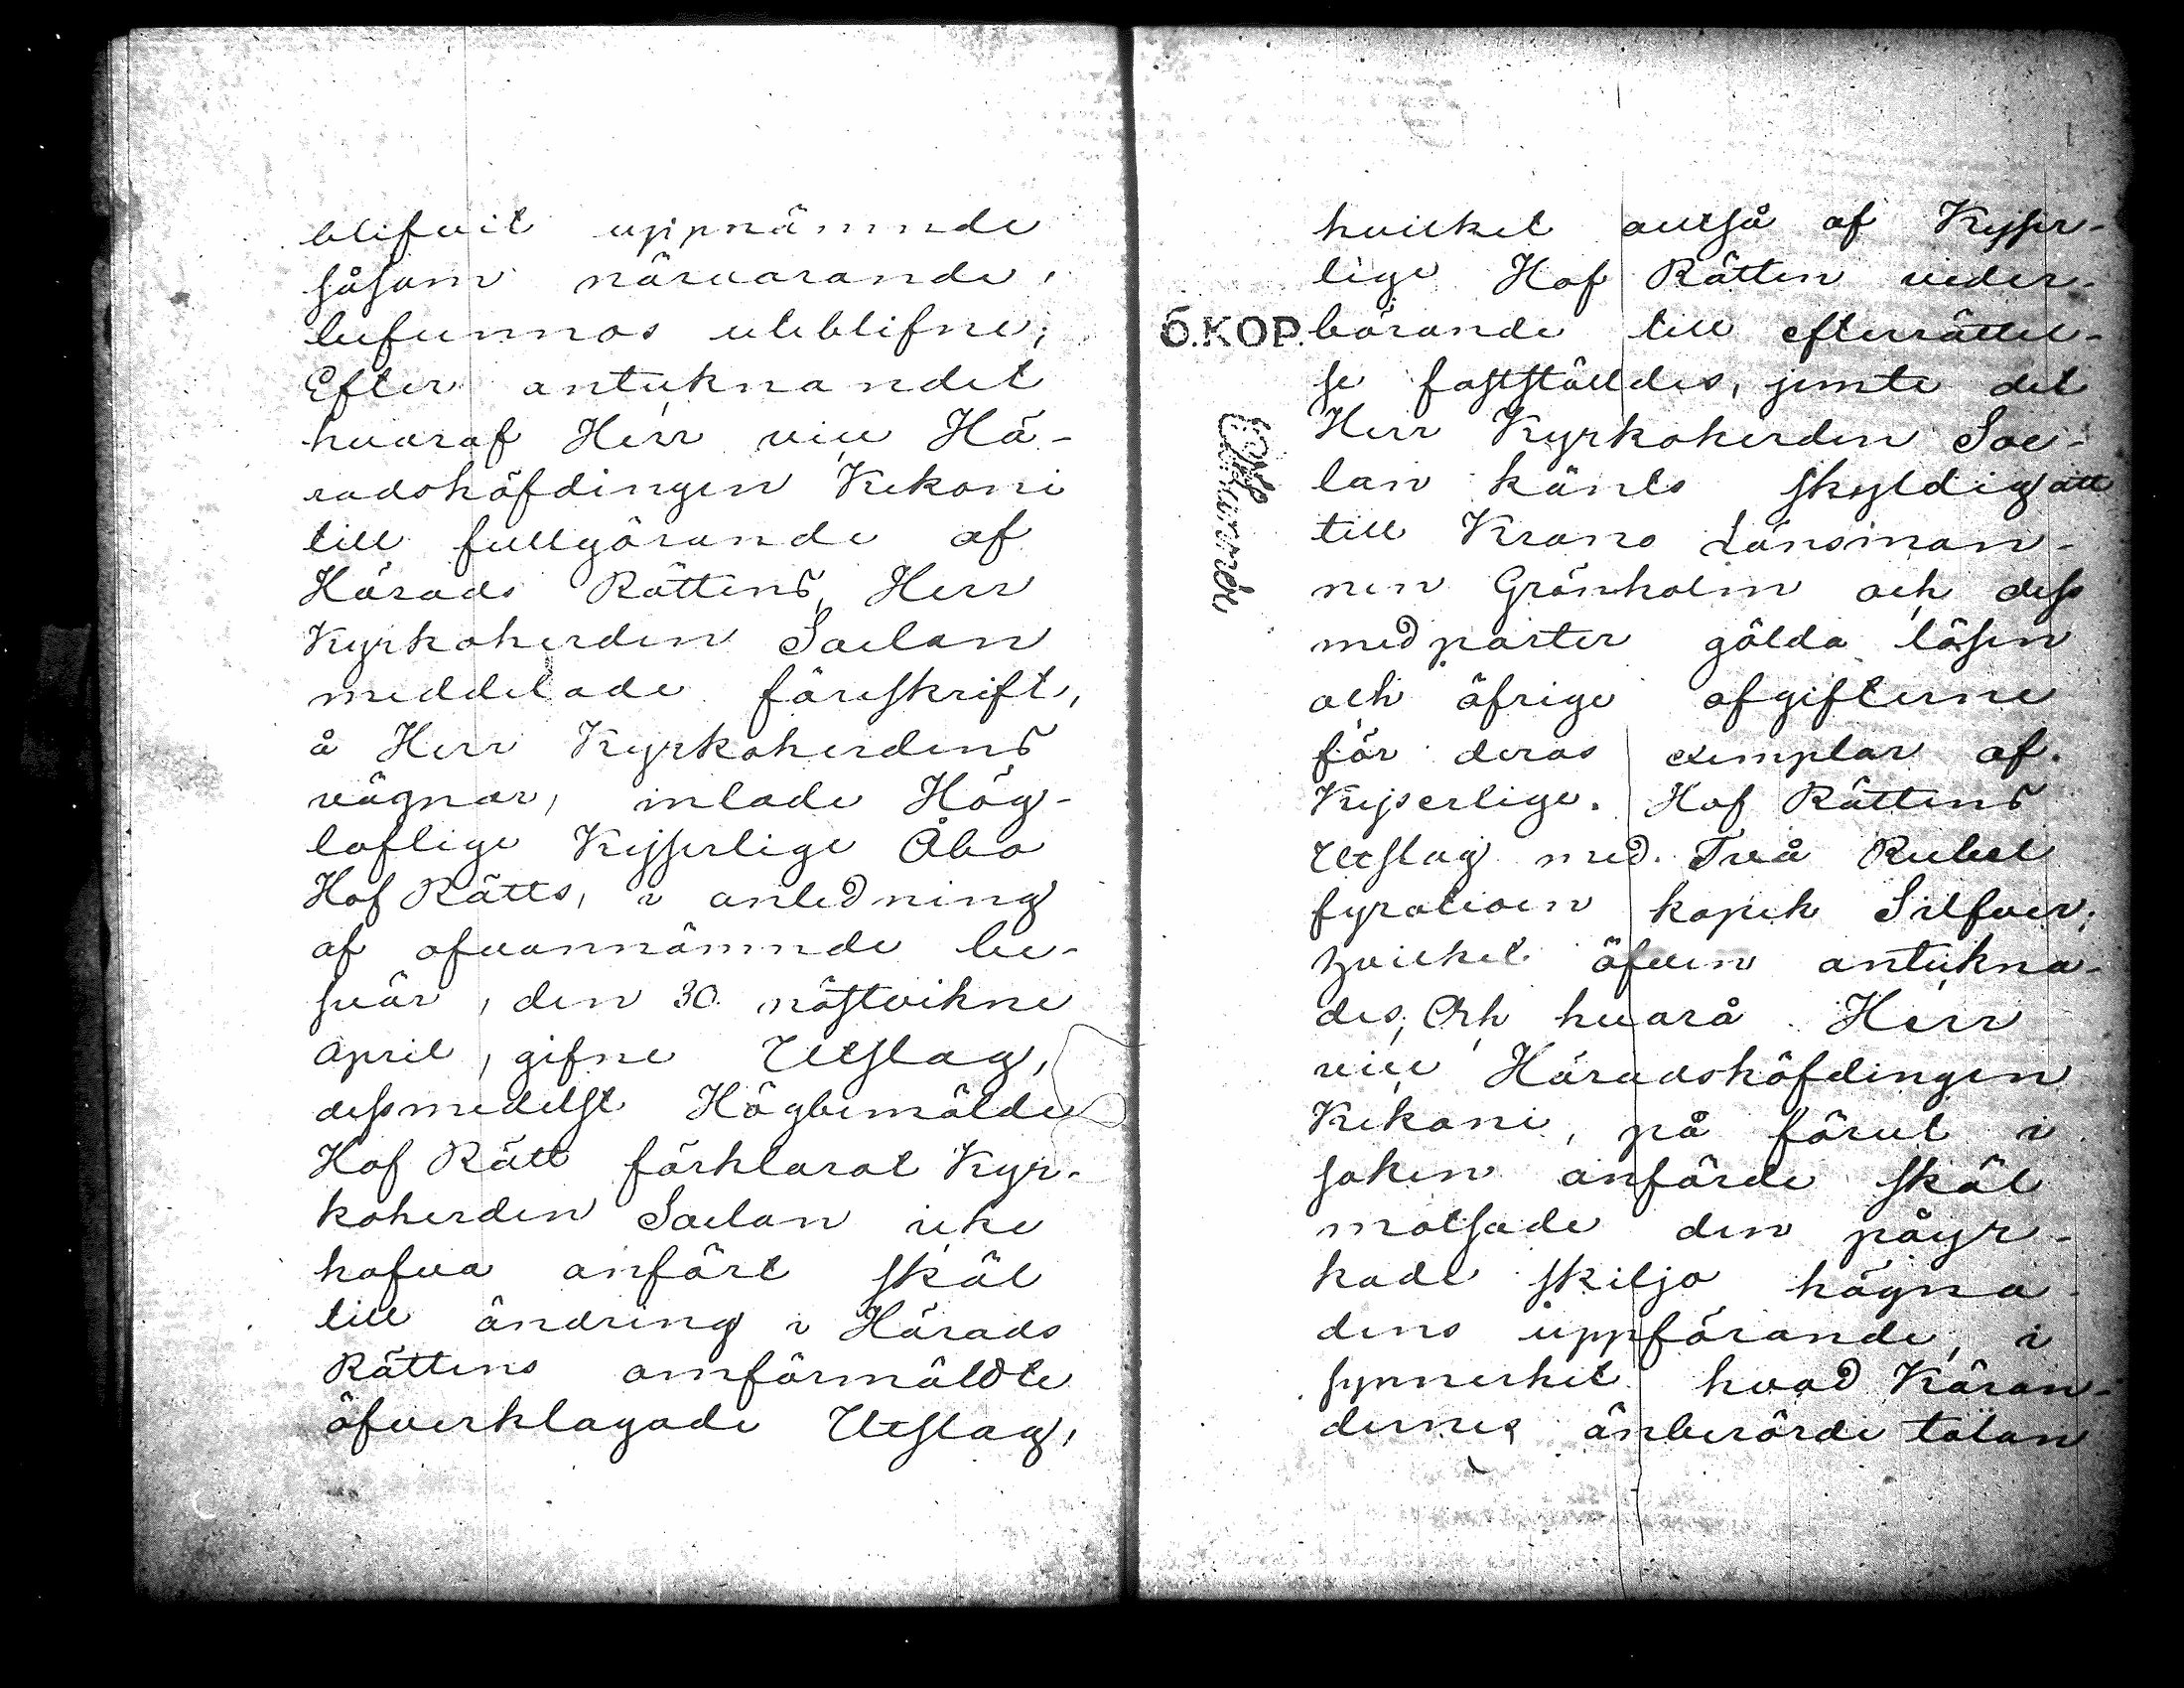 blifvit uppnämnde
såsom närvarande,
befunnos uteblifne;
Efter antecknandet
hvaraf Herr vice Hä-
radshöfdingen Kekoni
till fullgörande af
Härads Rättens, Herr
Kyrkoherden Saelan
meddelade föreskrift,
å Herr Kyrkoherdens
vägnar, inlade Hög-
loflige Kejserlige Åbo
Hof Rätts, i anledning
af ofvannämnde be-
svär, den 30 nästvikne
April, gifne Utslag,
dessmedelst Högbemälde
Hof Rätt förklarat Kyr-
koherden Saelan icke
hafva anfört skäl
till ändring i Härads
Rättens omförmäldte
öfverklagade Utslag,
hvilket altså af Kejser-
lige Hof Rätten veder-
б.КОР. börande till efterrättel-
se fastställdes, jemte det
Herr Kyrkoherden Sae-
lan känts skyldig att
till Krono Länsman-
nen Grönholm och dess
medparter gälda lösen
och öfrige afgifterne
för deras exemplar af
Kejserlige Hof Rättens
Utslag med Två Rubel
fyratioen kopek Silfver;
Hvilket äfven anteckna-
des; Och hvarå Herr
vice Häradshöfdingen
Kekoni, på förut i
saken anförde skäl
motsade den påyr-
kade skiljo hägna-
dens uppförande, i
synnerhet hvad Käran-
dernes änberörde talan